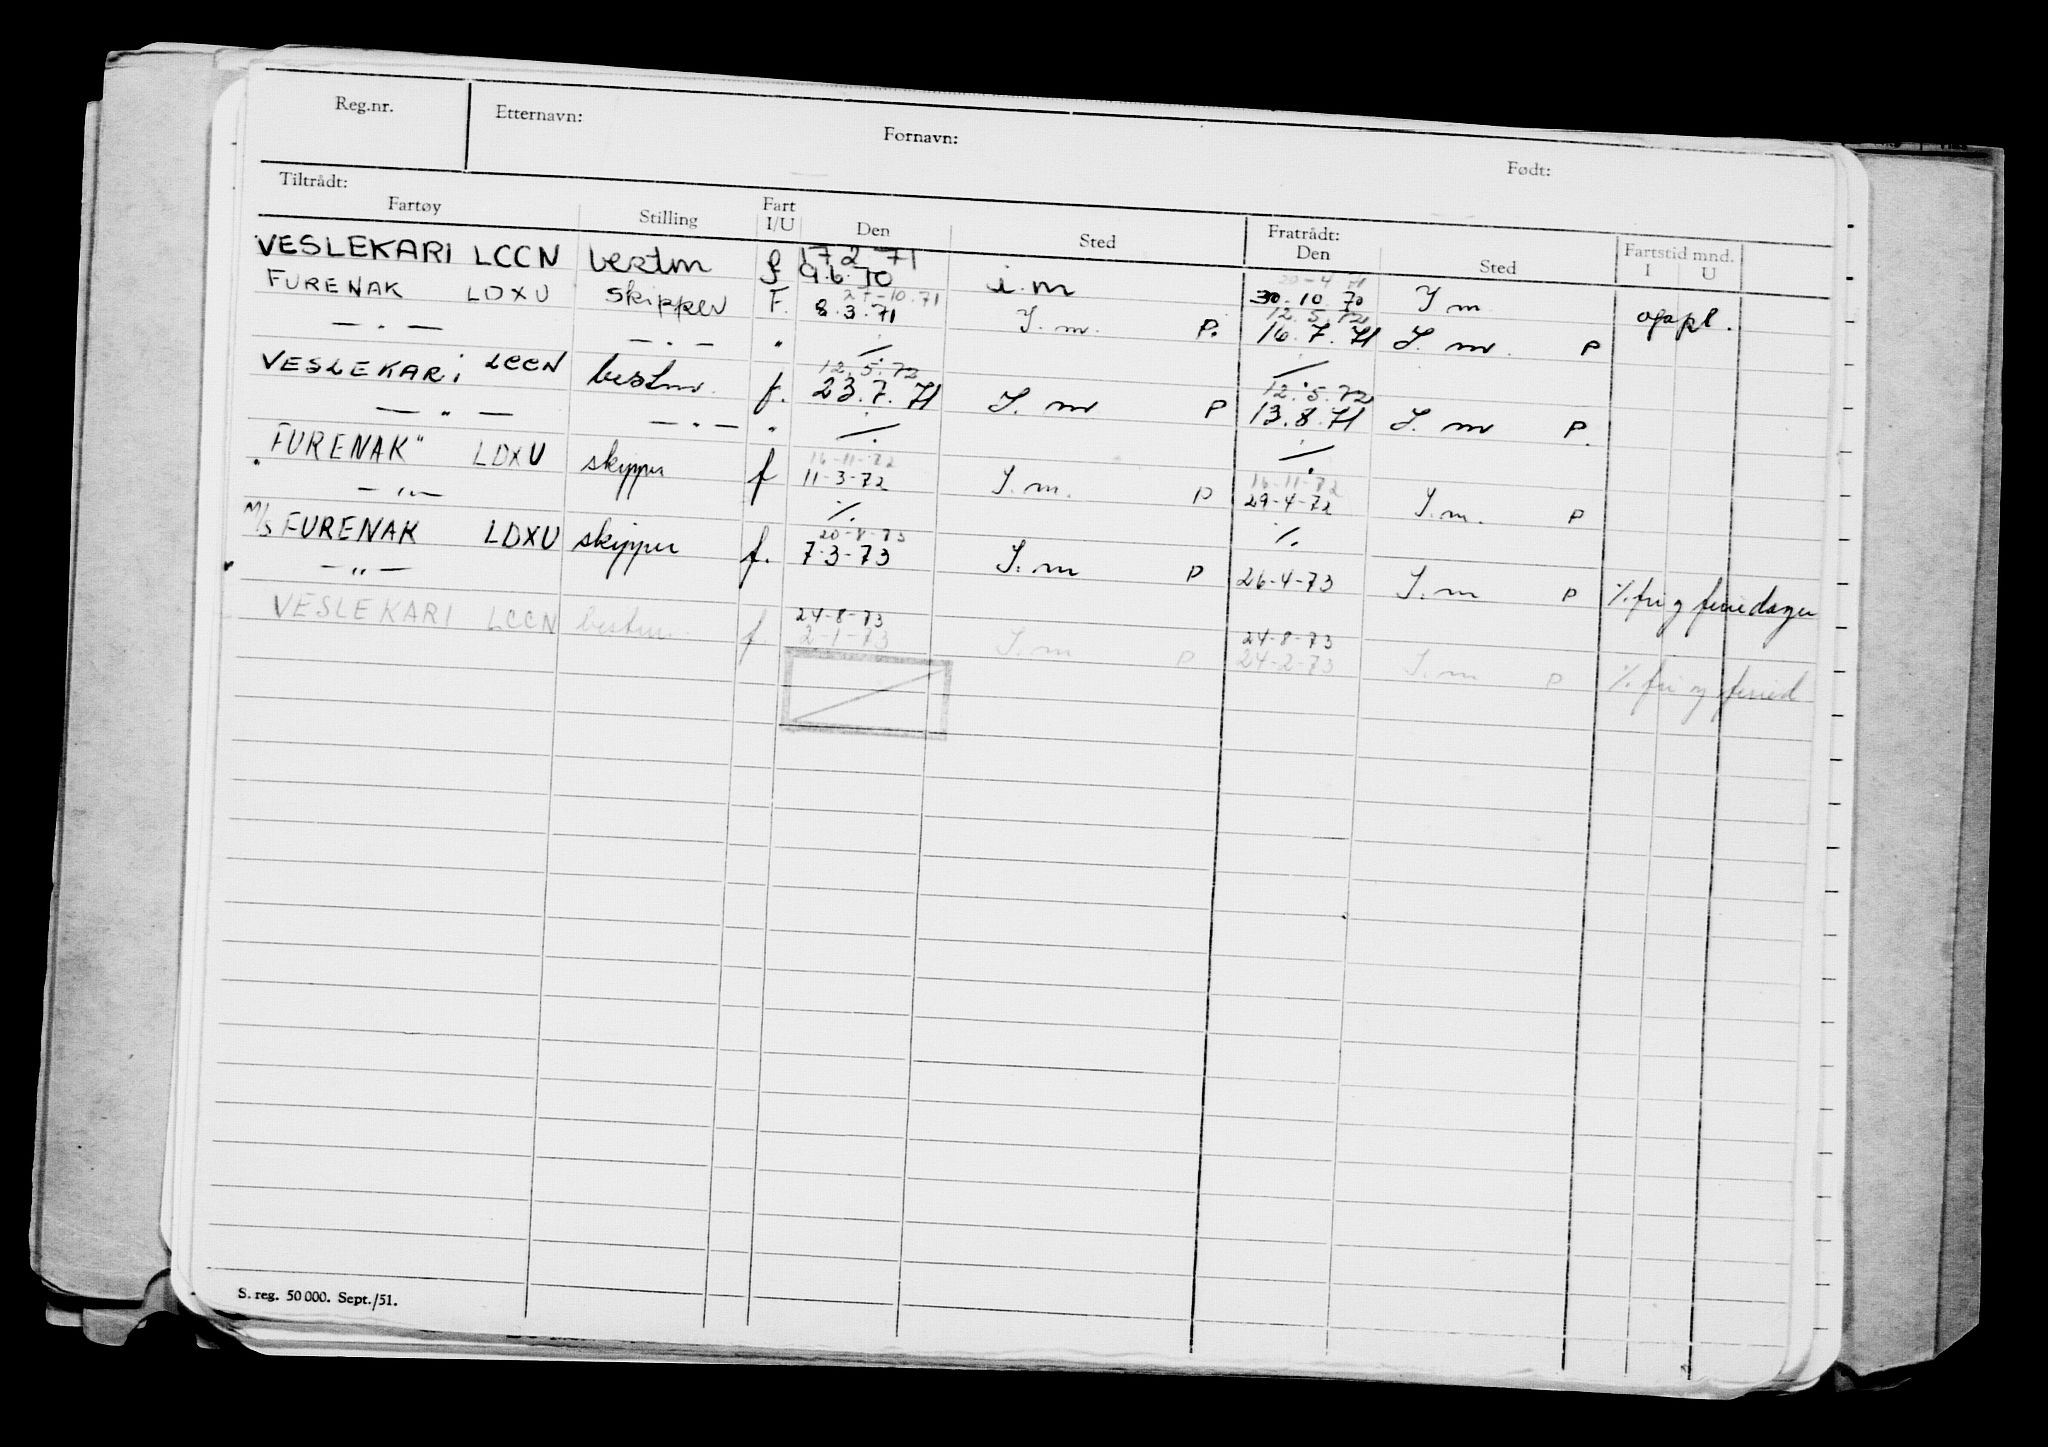 Reg.nr. Etternavn: Fornavn: Født:
Tiltrådt: Fratrådt:
Fartøy Stilling Fart I/U Den Sted Den Sted Fartstid mnd. I U
17 2 71 20-4 71
VESLEKARI LCCN bestm f 9.6.70 i.m 30.10.70 I m
27-10.71 12.5.72
FURENAK LDXU Skipper F. 8.3.71 I. m. P. 16.7.71 I. m. P
— . — — . — " /. /.
12.5.72 12.5.72
VESLEKARi LCCN bestm. f. 23.7.71 I. m P 13.8.71 I. m P.
— " — — . — " /. /.
16-11-72 16-11-72
"FURENAK" LDXU skipper f 11-3-72 I.m. P 29-4-72 I.m. P
— " — /. /.
20-8-73
M/S FURENAK LDXU skipper f. 7-3-73 I.m P 26-4-73 I.m P /. fri og feriedager
— " — 24-8-73 24-8-73
VESLEKARI LCCN bestm. f 2-1-73 I.m P 24-2-73 I.m P /. fri og feried
S. reg. 50 000. Sept./51.